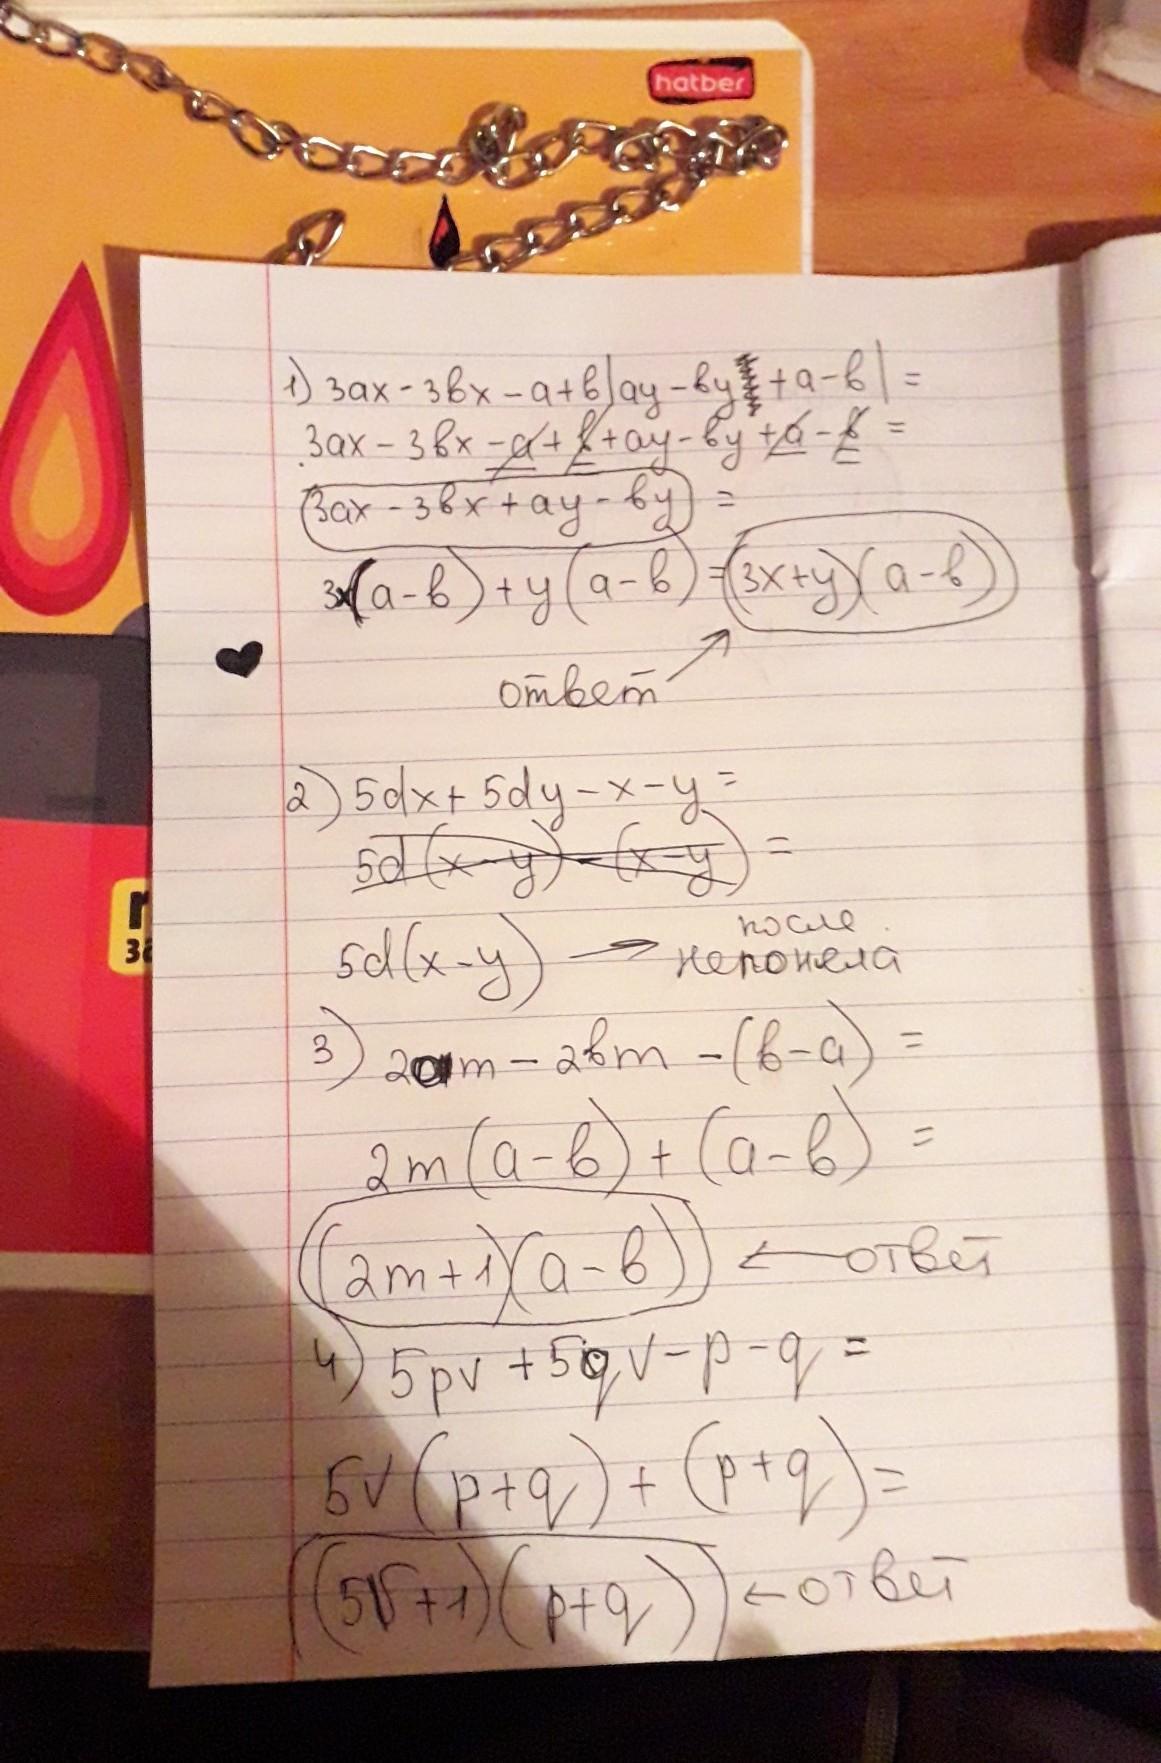 hatber
1) 3ax - 3вx - a + в|ay - вy + a - в| =
3ax - 3вx - a + в + ay - вy + a - в =
3ax - 3вx + ay - вy =
3x(a - в) + y(a - в) = (3x + y)(a - в)
ответ
2) 5dx + 5dy - x - y =
5d(x - y) - (x - y) =
5d(x - y) → после
непонела
3) 2am - 2вm - (в - a) =
2m(a - в) + (a - в) =
(2m + 1)(a - в) ← ответ
4) 5pv + 5qv - p - q =
5v(p + q) + (p + q) =
(5v + 1)(p + q) ← ответ